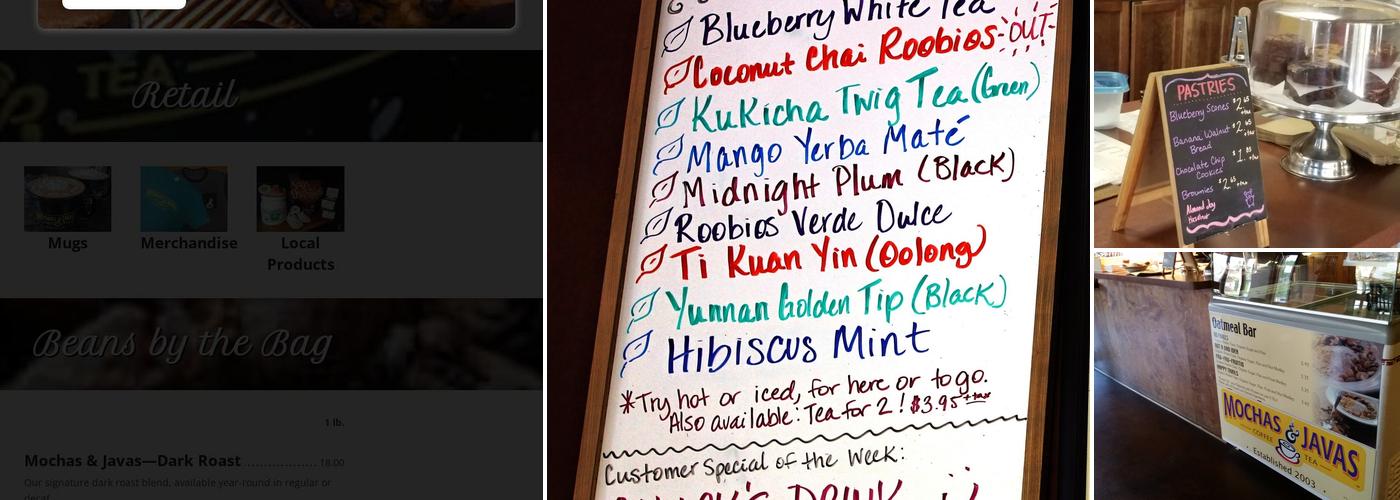 TEA
Retail
Mugs
Merchandise
Local
Products
Beans by the Bag
1 lb.
Mochas & Javas—Dark Roast 18.00
Our signature dark roast blend, available year-round in regular or
decaf
Blueberry White Tea
Coconut Chai Roobios -OUT-
Kukicha Twig Tea (Green)
Mango Yerba Maté
Midnight Plum (Black)
Roobios Verde Dulce
Ti Kuan Yin (Oolong)
Yunnan Golden Tip (Black)
Hibiscus Mint
*Try hot or iced, for here or to go.
Also available: Tea for 2! $3.95 +tax
Customer Special of the Week:
DRINK
PASTRIES
Blueberry Scones $2.65 +tax
Banana Walnut $2.65
Bread +tax
Chocolate Chip $1.85
Cookies +tax
Brownies $2.65 +tax
Almond Joy
Hazelnut
Oatmeal Bar
MOCHAS & JAVAS
COFFEE TEA
Established 2003